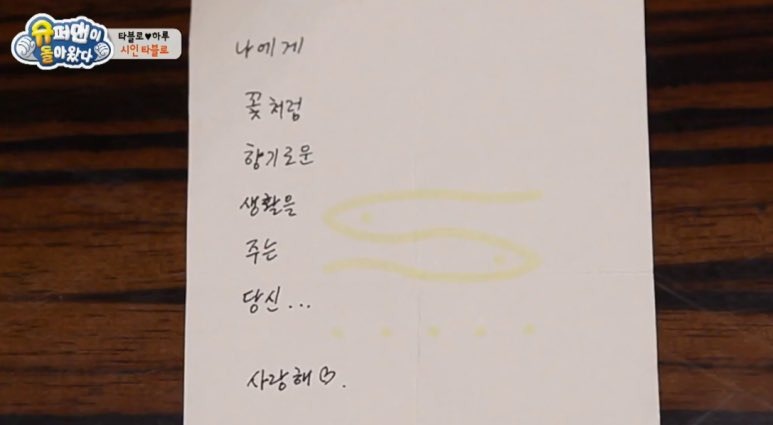 슈퍼맨이
돌아왔다
타블로♥하루
시인 타블로
나에게
꽃처럼
향기로운
생활을
주는
당신...
사랑해♡.